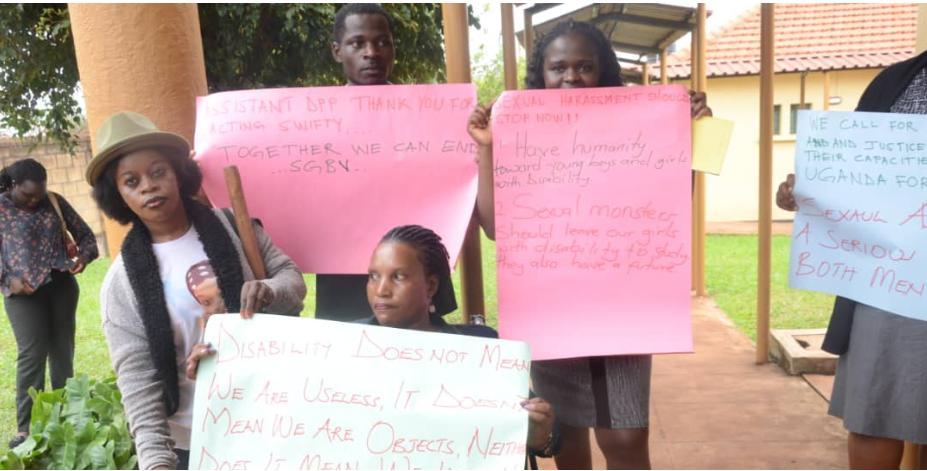 ASSISTANT DPP THANK YOU FOR
ACTING SWIFTY....
TOGETHER WE CAN END
...SGBV..
SEXUAL HARASSMENT SHOULD
STOP NOW!!
1 Have humanity
toward young boys and girls
with Disability.
2. Sexual monsters
Should leave our girls
with disability to study
they also have a future.
WE CALL FOR
AND JUSTICE
THEIR CAPACITIE
UGANDA FOR
SEXAUL A
A SERIOU
BOTH MEN
DISABILITY DOES NOT MEAN
WE ARE USELESS, IT DOESN
MEAN WE ARE OBJECTS, NEITHER
DOES IT MEAN WE